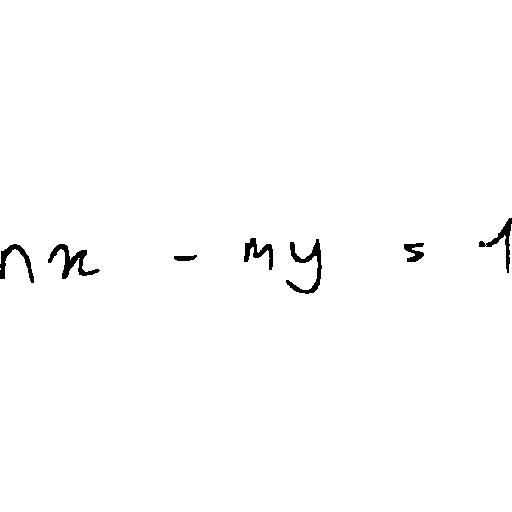 nx - my = 1